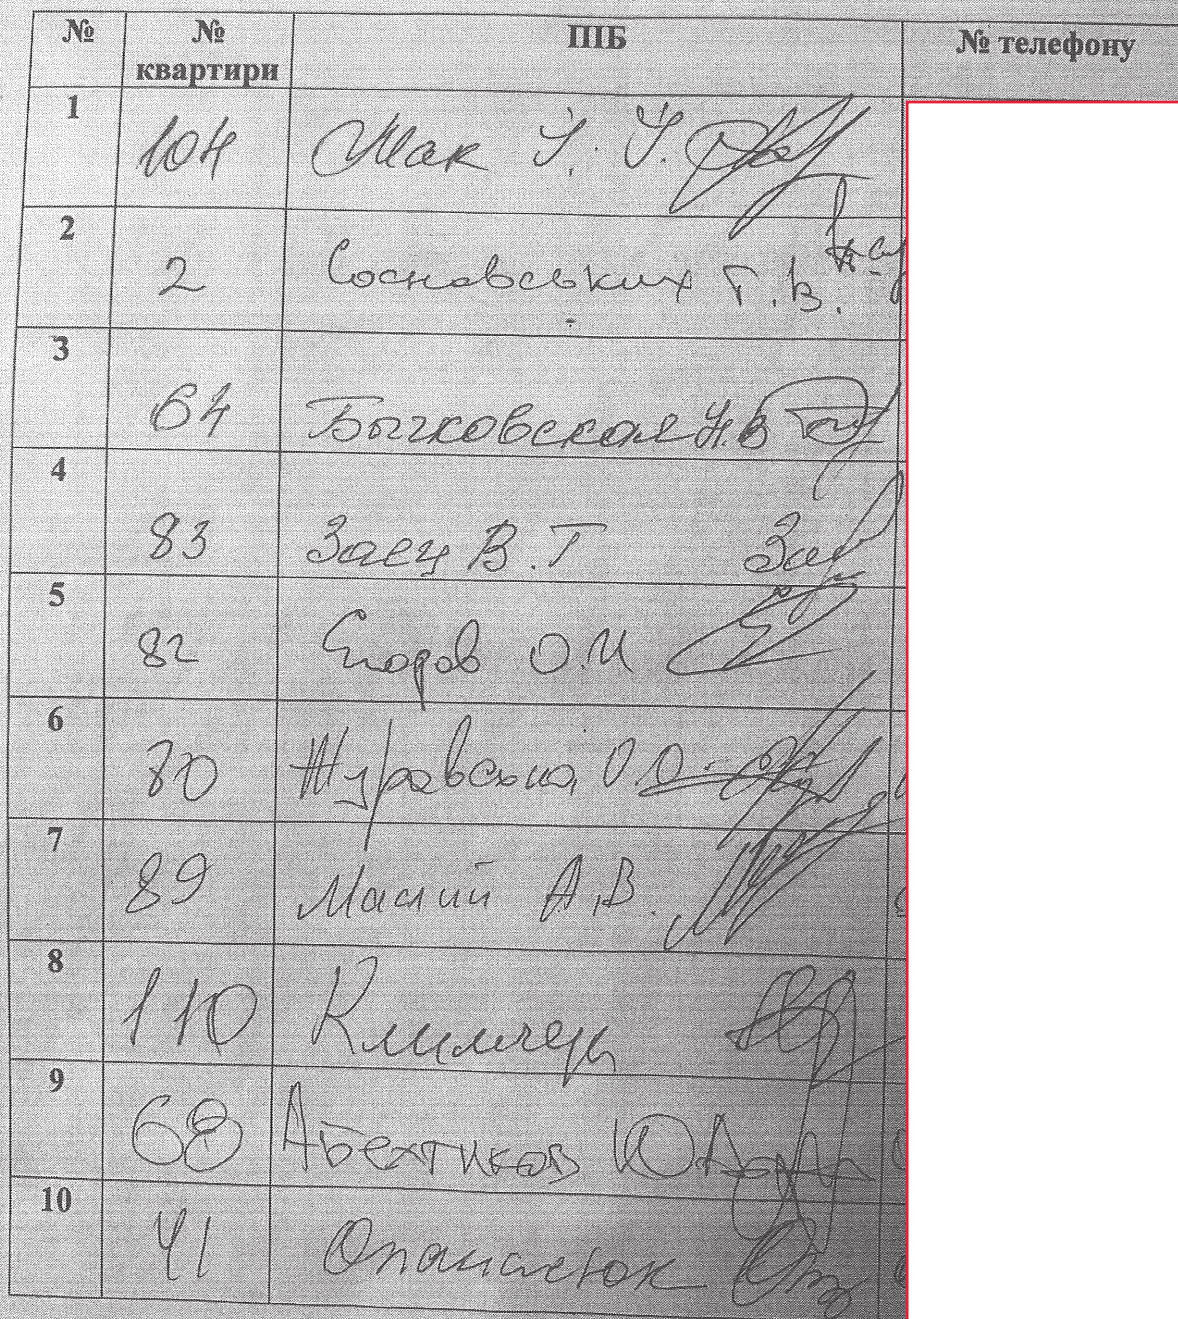 № № квартири ПІБ № телефону
1 104 Мак
2 2 Сосновських Г.В.
3 64 Бычковская Н.В
4 83 Заец В.Т
5 82 Егоров О.М
6 80 Журавська О.О.
7 89 Малий А.В.
8 110
9 68 Абехтиков Ю
10 41 Опанасюк